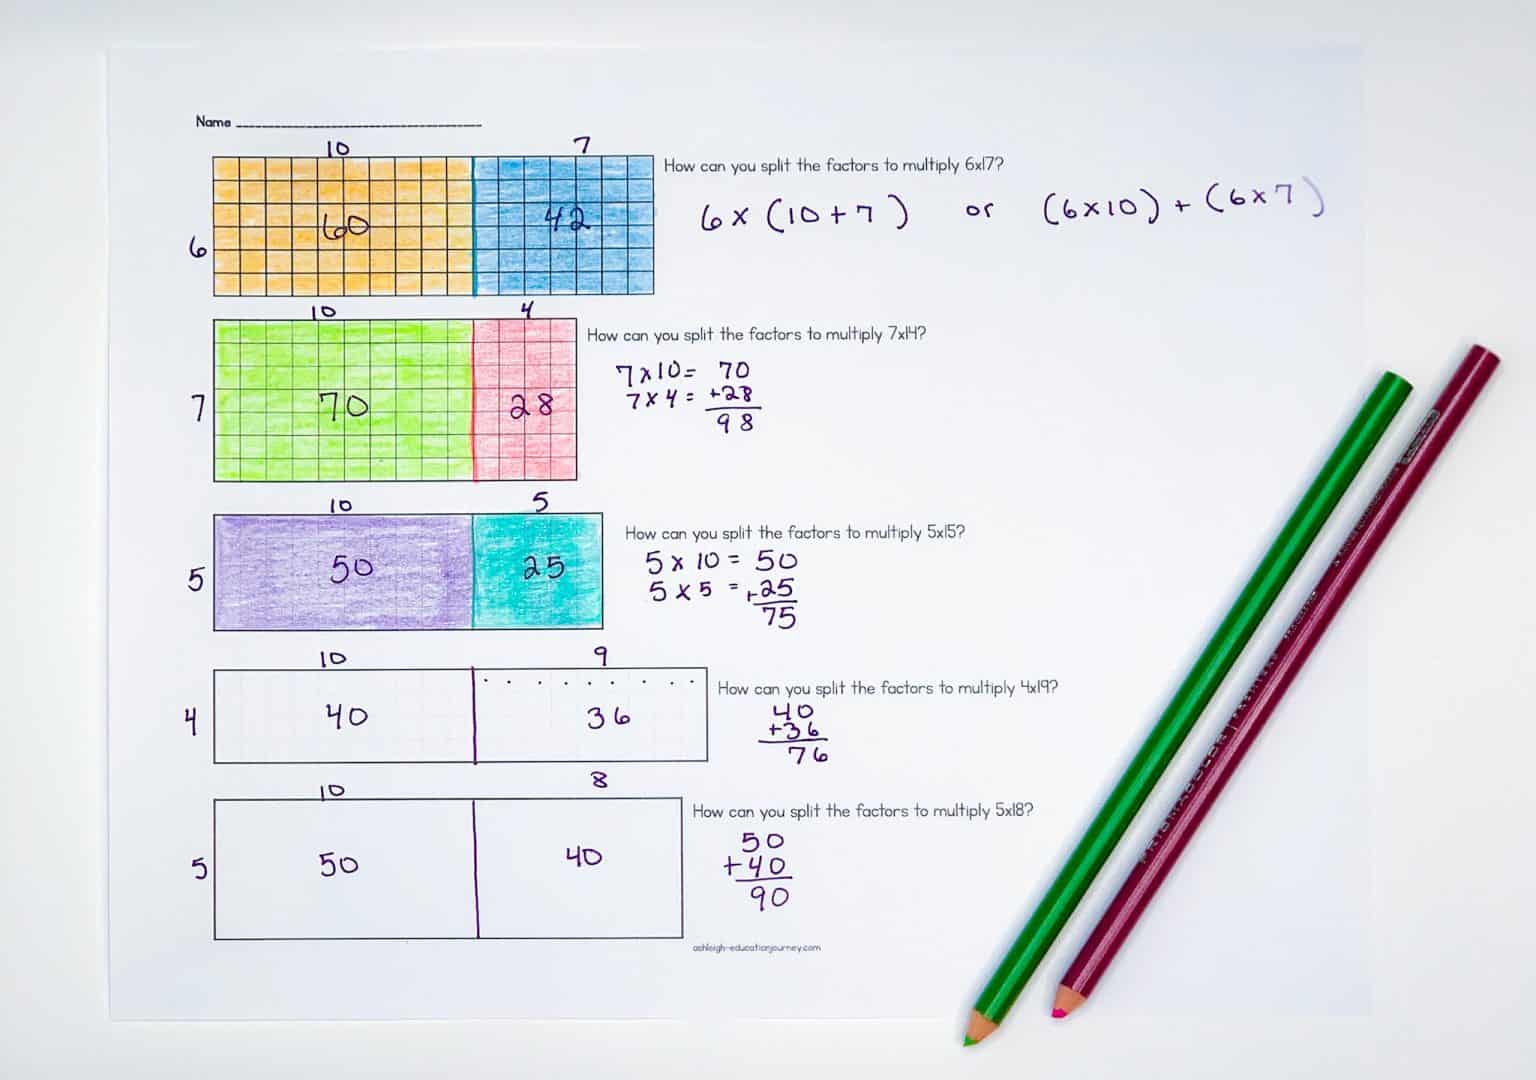 Name
10 7
How can you split the factors to multiply 6x17?
6 60 42
6 x (10 + 7) or (6x10) + (6 x 7)
10 4
How can you split the factors to multiply 7x14?
7 70 28
7 x 10 = 70
7 x 4 = +28
98
10 5
How can you split the factors to multiply 5x15?
5 50 25
5 x 10 = 50
5 x 5 = +25
75
10 9
How can you split the factors to multiply 4x19?
4 40 36
40
+36
76
10 8
How can you split the factors to multiply 5x18?
5 50 40
50
+40
90
ashleigh-educationjourney.com
PRISMACOLOR